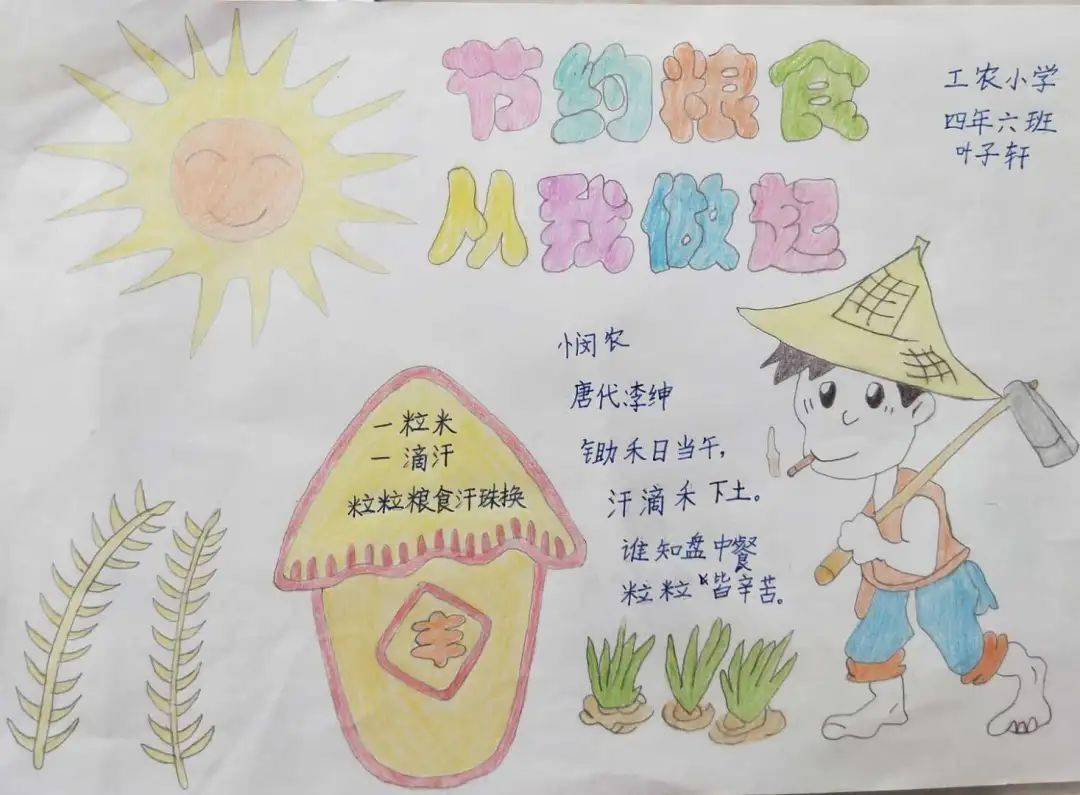 节约粮食
从我做起
工农小学
四年六班
叶子轩
悯农
唐代李绅
锄禾日当午,
汗滴禾下土。
谁知盘中餐
粒粒皆辛苦。
一粒米
一滴汗
粒粒粮食汗珠换
丰